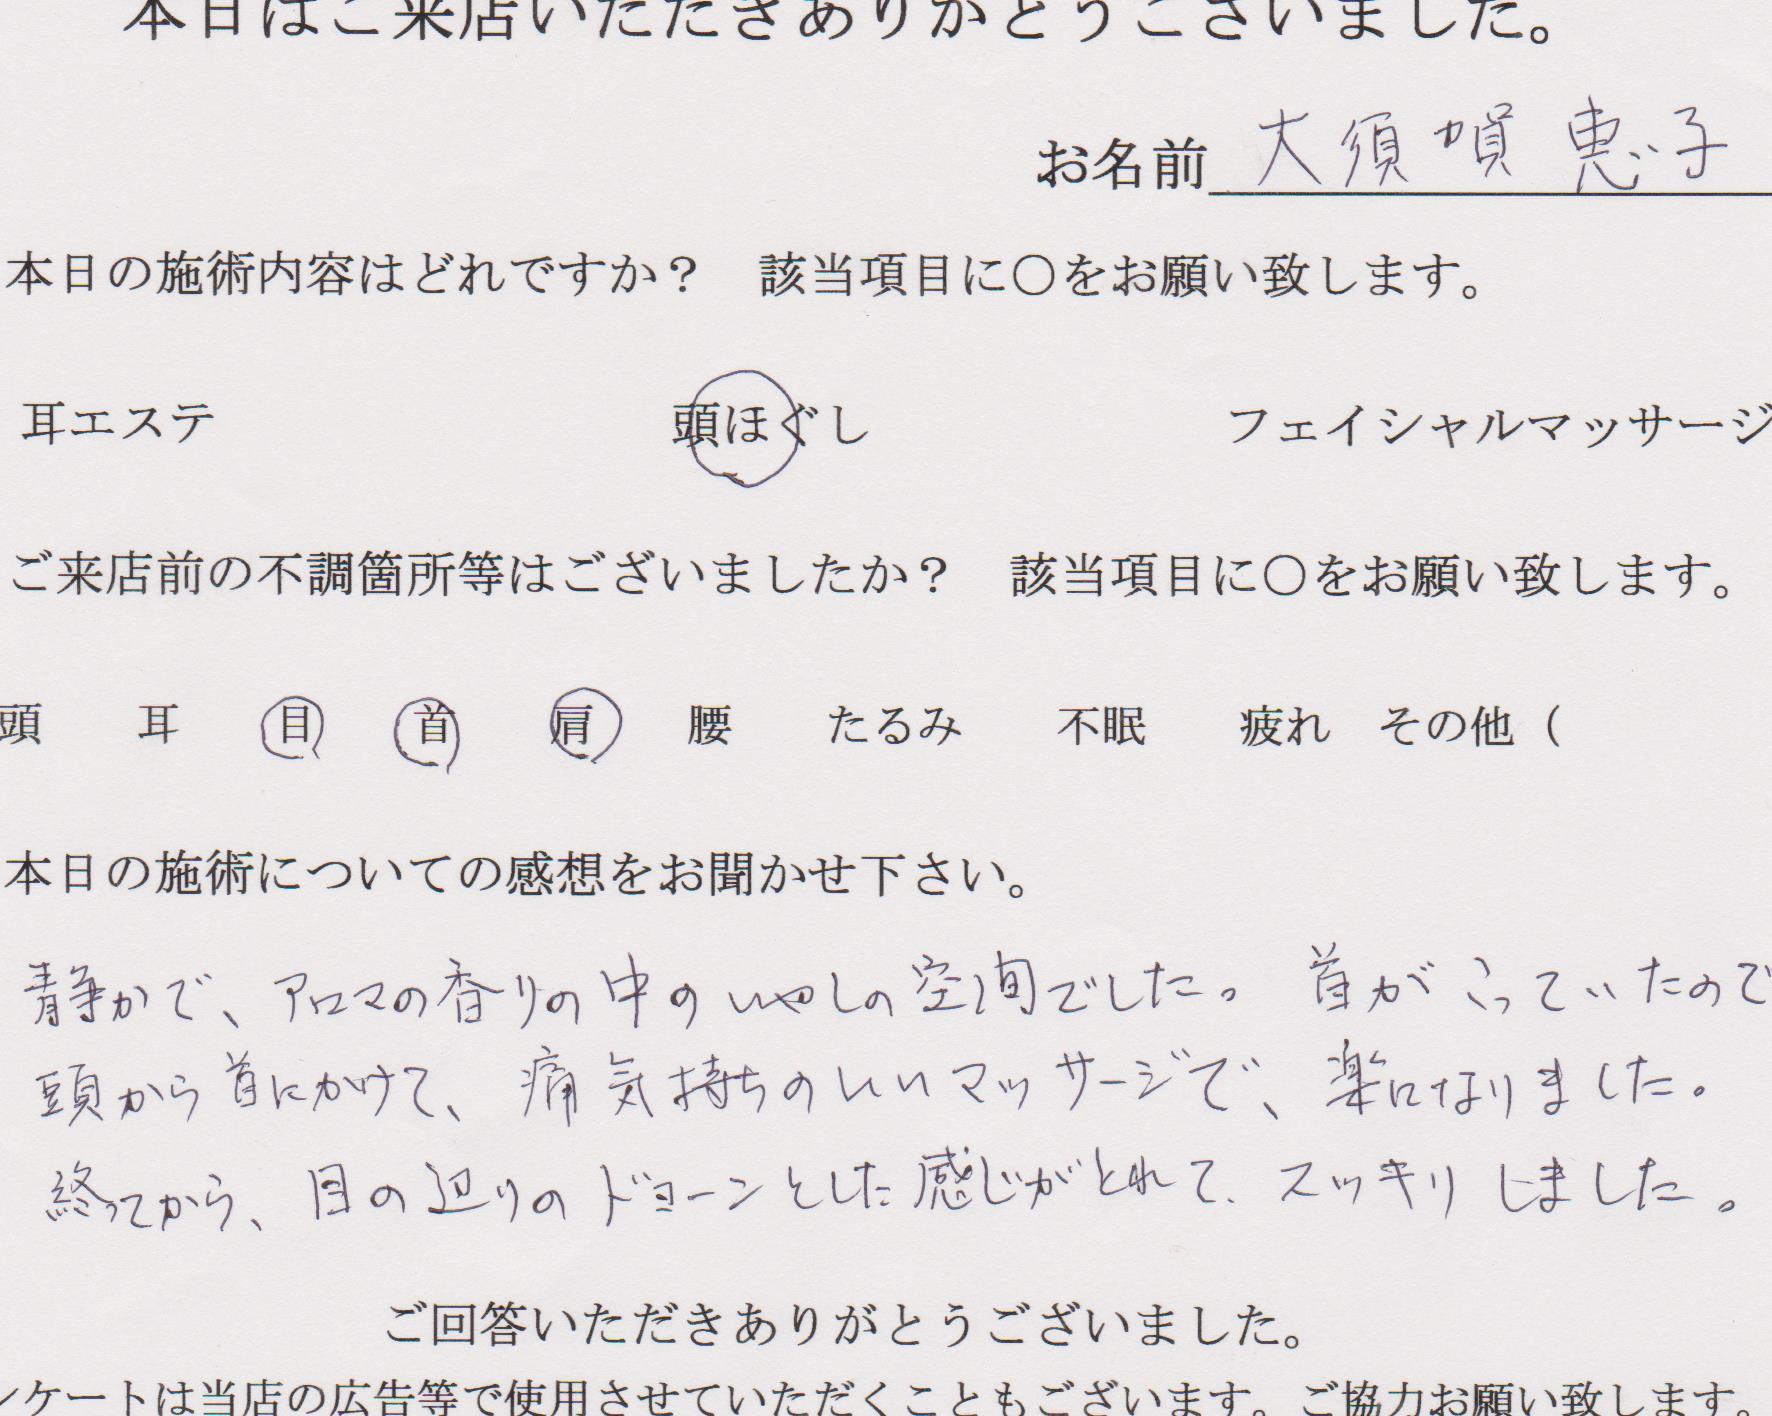 本日はご来店いただきありがとうございました。
お名前 大須賀 恵子
本日の施術内容はどれですか？　該当項目に〇をお願い致します。
耳エステ 頭ほぐし フェイシャルマッサージ
ご来店前の不調箇所等はございましたか？　該当項目に〇をお願い致します。
頭 耳 目 首 肩 腰 たるみ 不眠 疲れ その他（
本日の施術についての感想をお聞かせ下さい。
静かで、アロマの香りの中のいやしの空間でした。首がこっていたので
頭から首にかけて、痛気持ちのいいマッサージで、楽になりました。
終ってから、目の辺りのドヨーンとした感じがとれて、スッキリしました。
ご回答いただきありがとうございました。
ンケートは当店の広告等で使用させていただくこともございます。ご協力お願い致します。